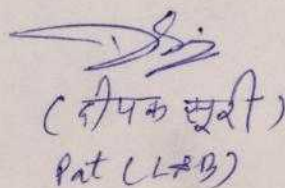 (दीपक सूरी)
Pat (L&B)